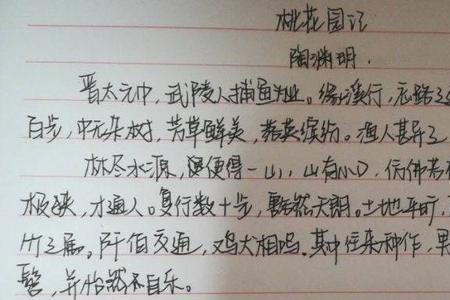 桃花园记
陶渊明.
晋太元中,武陵人捕鱼为业。缘溪行,忘路之
百步,中无杂树,芳草鲜美,落英缤纷。渔人甚异之
林尽水源,便得一山,山有小口,仿佛若
极狭,才通人。复行数十步,豁然天朗。土地平旷,
竹之属。阡伯交通,鸡犬相鸣。其中往来种作,男
髫,并怡然不自乐。